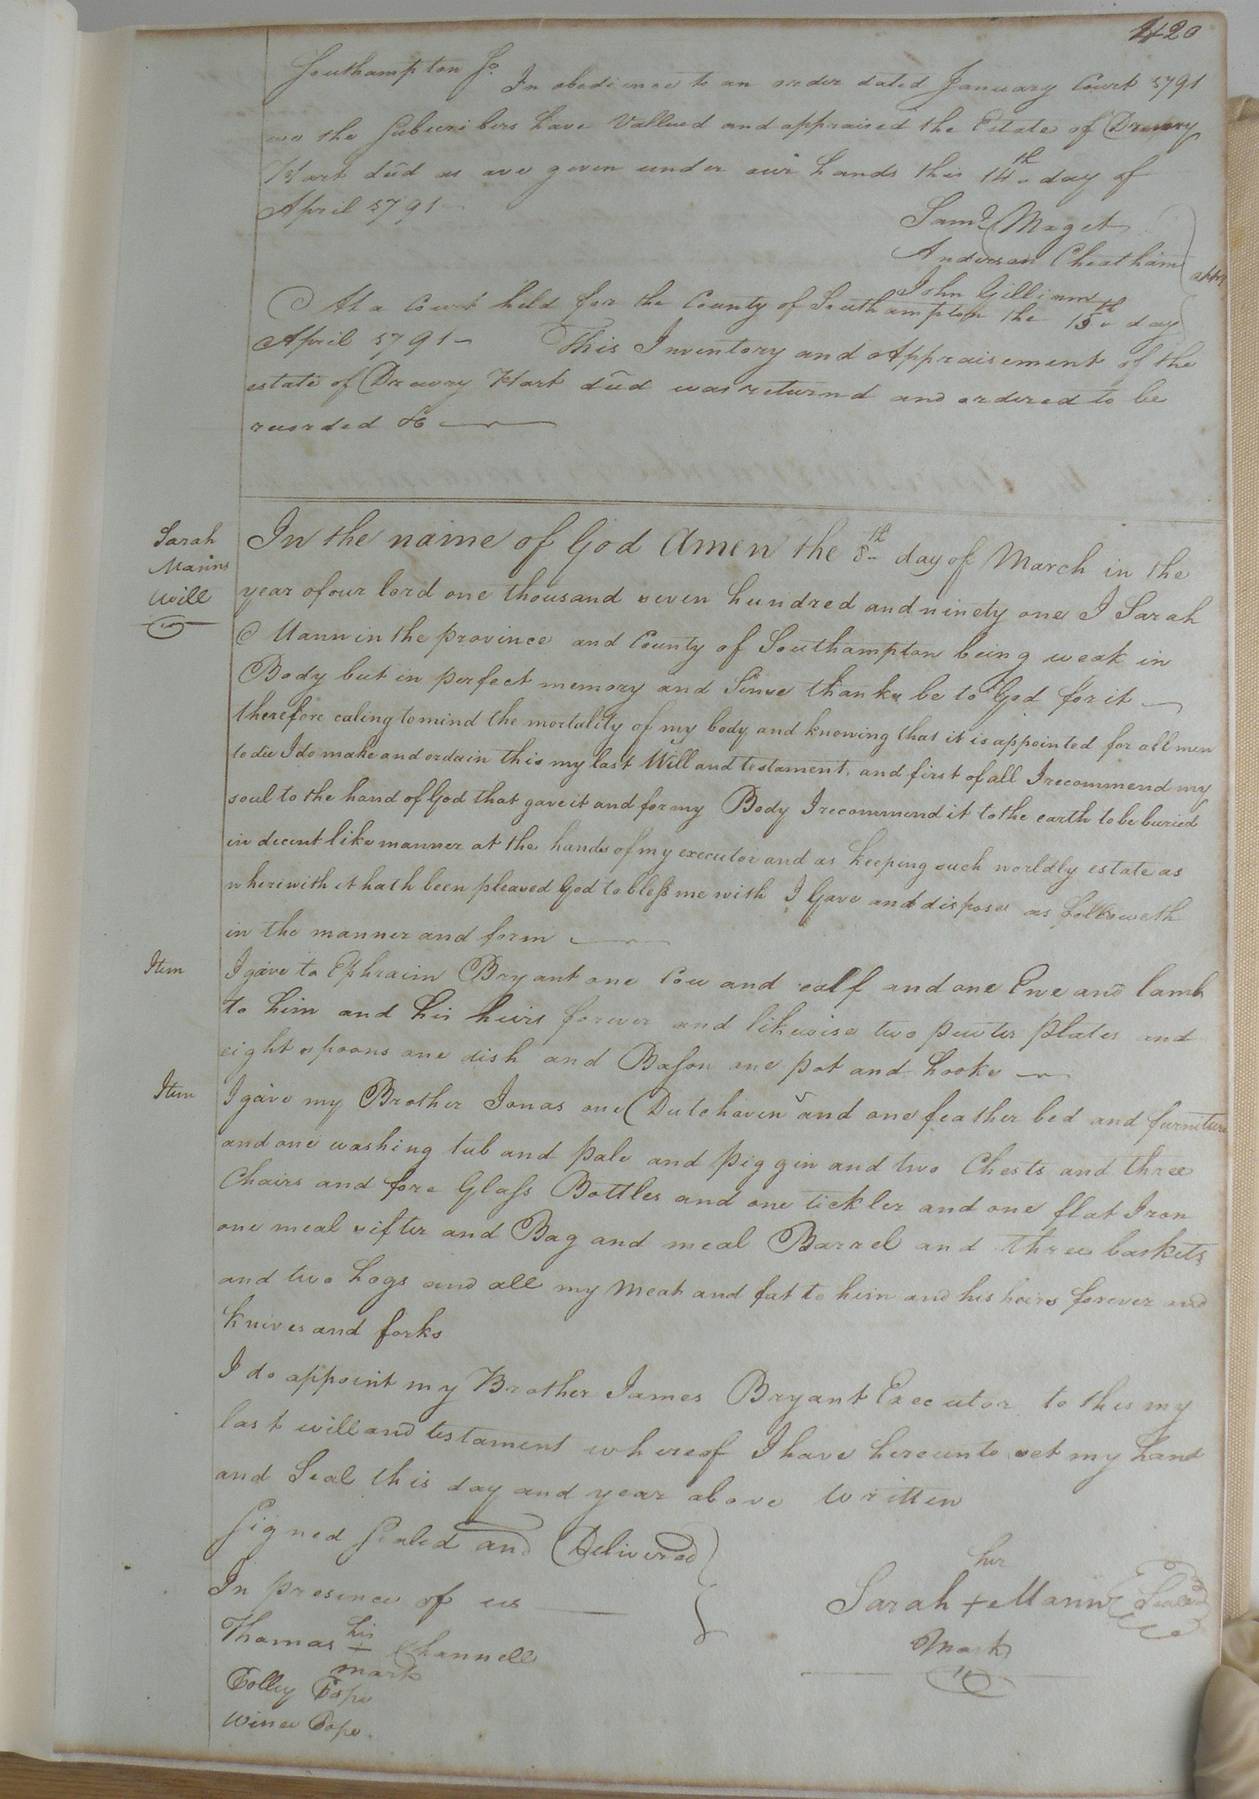 420
Southampton Sc. In obedience to an order dated January Court 1791
we the Subscribers have Vallued and appraised the Estate of Drewry
Hart decd as are given under our hands this 14th day of
April 1791
Saml Maget
Anderson Cheatham
John Gilliam
At a Court held for the County of Southampton the 15th day
April 1791 This Inventory and Appraisement of the
estate of Drewry Hart decd was returnd and ordered to be
recorded &c
Sarah
Manns
Will
In the name of God Amen the 8th day of March in the
year of our lord one thousand seven hundred and ninety one I Sarah
Mann in the province and County of Southampton being weak in
Body but in perfect memory and Since thanks be to God for it
therefore caling to mind the mortality of my body and knowing that it is appointed for all men
to die I do make and ordain this my last Will and testament, and first of all I recommend my
soul to the hand of God that gave it and for my Body I recommend it to the earth to be buried
in decent like manner at the hands of my executor and as keeping such worldly estate as
wherewith it hath been pleased God to bless me with I Gave and dispose as followeth
in the manner and form
Item I give to Ephraim Bryant one Cow and calf and one Ewe and lamb
to him and his heirs forever and likewise two pewter plates and
eight spoons one dish and Bason one pot and hooks
Item I give my Brother Jonas one Dutchoven and one feather bed and furniture
and one washing tub and pale and piggin and two Chests and three
Chairs and fore Glass Bottles and one tickler and one flat Iron
one meal sifter and Bag and meal Barrel and three baskets
and two hogs and all my meat and fat to him and his heirs forever and
knives and forks
I do appoint my Brother James Bryant Executor to this my
last will and testament whereof I have hereunto set my hand
and Seal this day and year above written
Signed Sealed and Delivered
In presence of us
her
Sarah + Mann Seal
Mark
Thomas his + Channell
mark
Polley Pope
Winea Pope